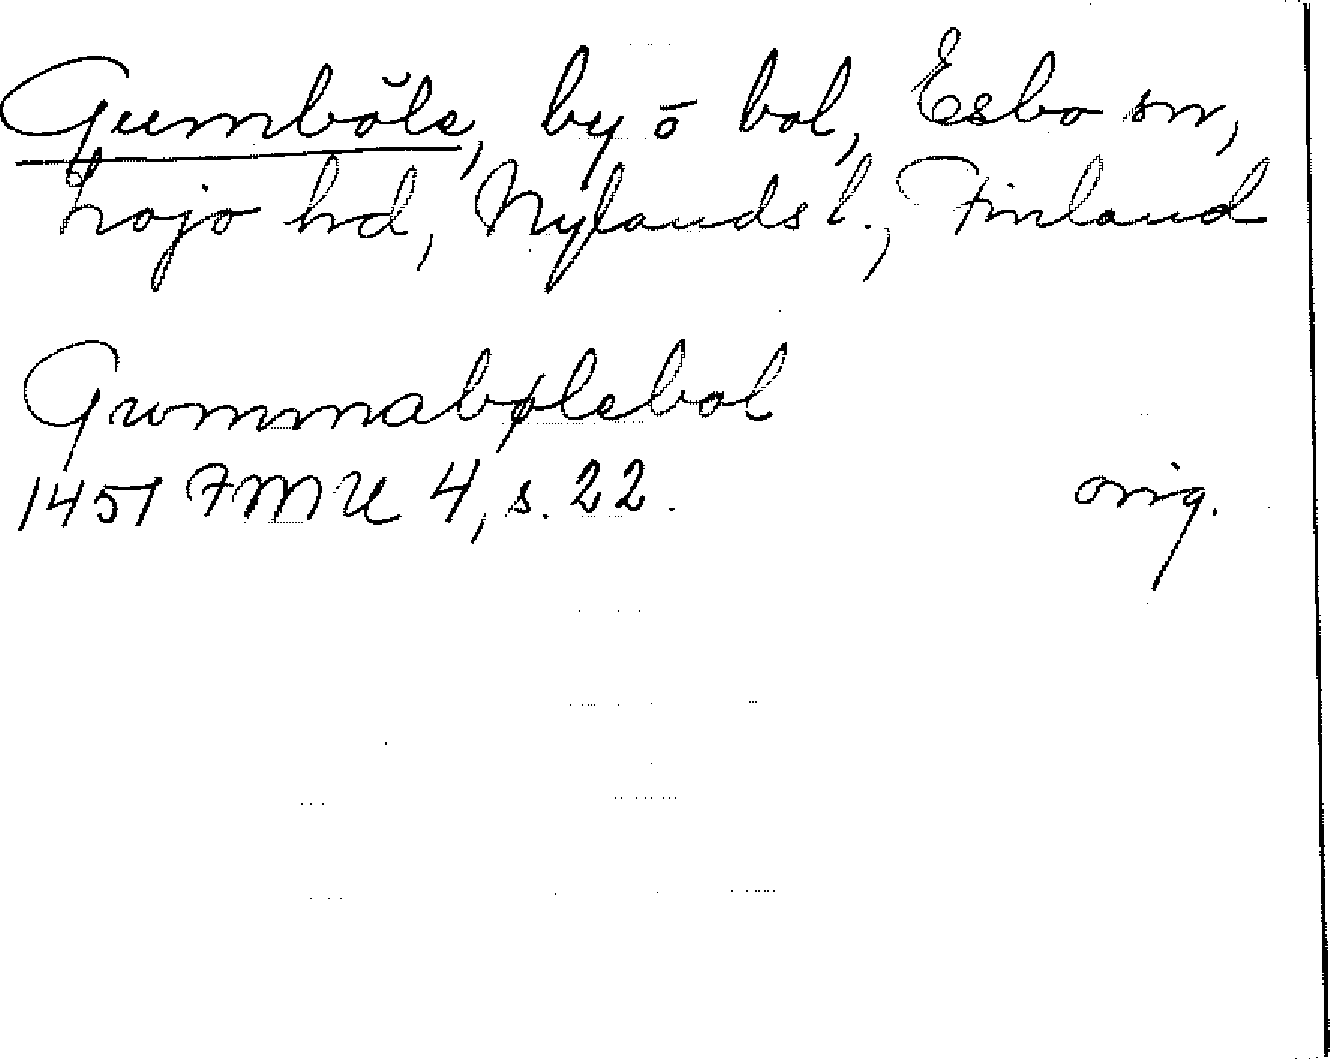 Gumböle, by o bol, Esbo sn,
Lojo hd, Nylands l., Finland
Gummabølebol
1451 FMU 4, s. 22.
orig.